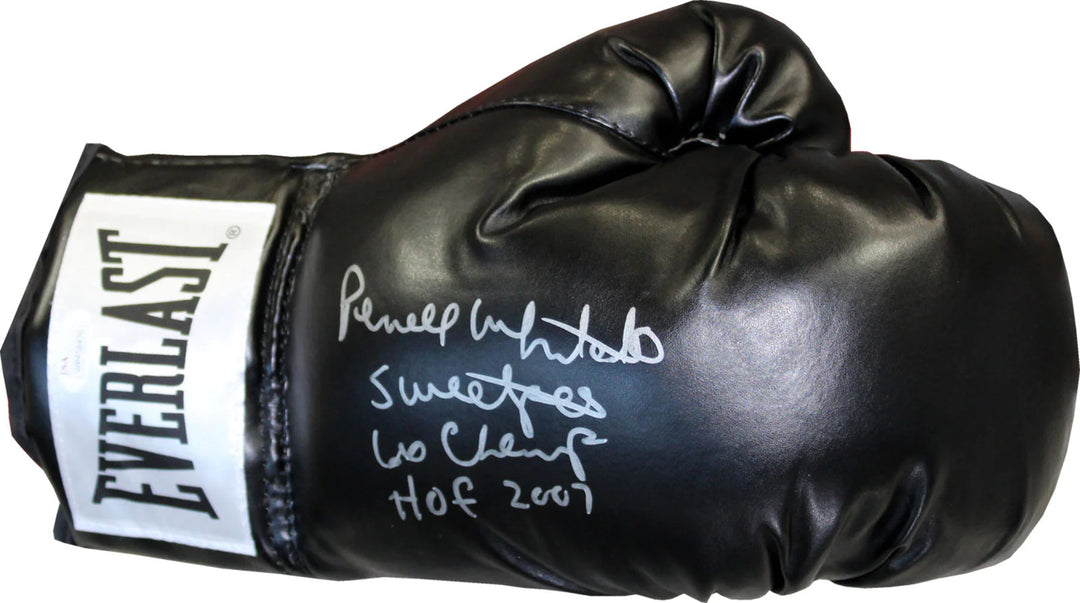 EVERLAST®
JSA
Pernell Whitaker
Sweetpea
6x Champ
HOF 2007